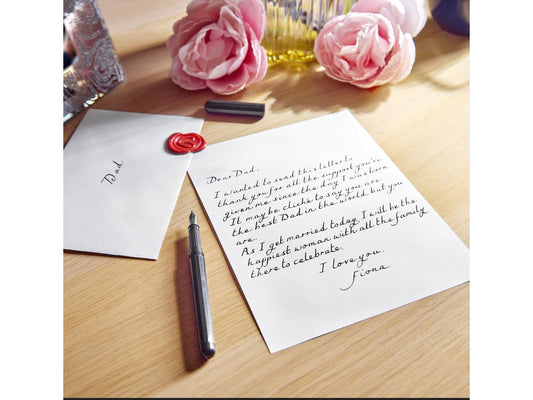 Dad
Dear Dad,
I wanted to send this letter to
thank you for all the support you've
given me since the day I was born.
It may be cliché to say you are
the best Dad in the world but you
are.
As I get married today I will be the
happiest woman with all the family
there to celebrate.
I love you.
Fiona